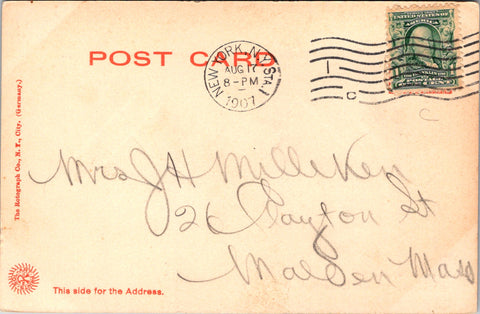 POST CARD
NEW YORK, N.Y. STA. I
AUG 17
8-PM
1907
I
C
UNITED STATES OF
AMERICA
FRANKLIN
The Rotograph Co., N. Y., City. (Germany.)
Mrs J H Milliken
26 Clayton St
Malden Mass
This side for the Address.
C